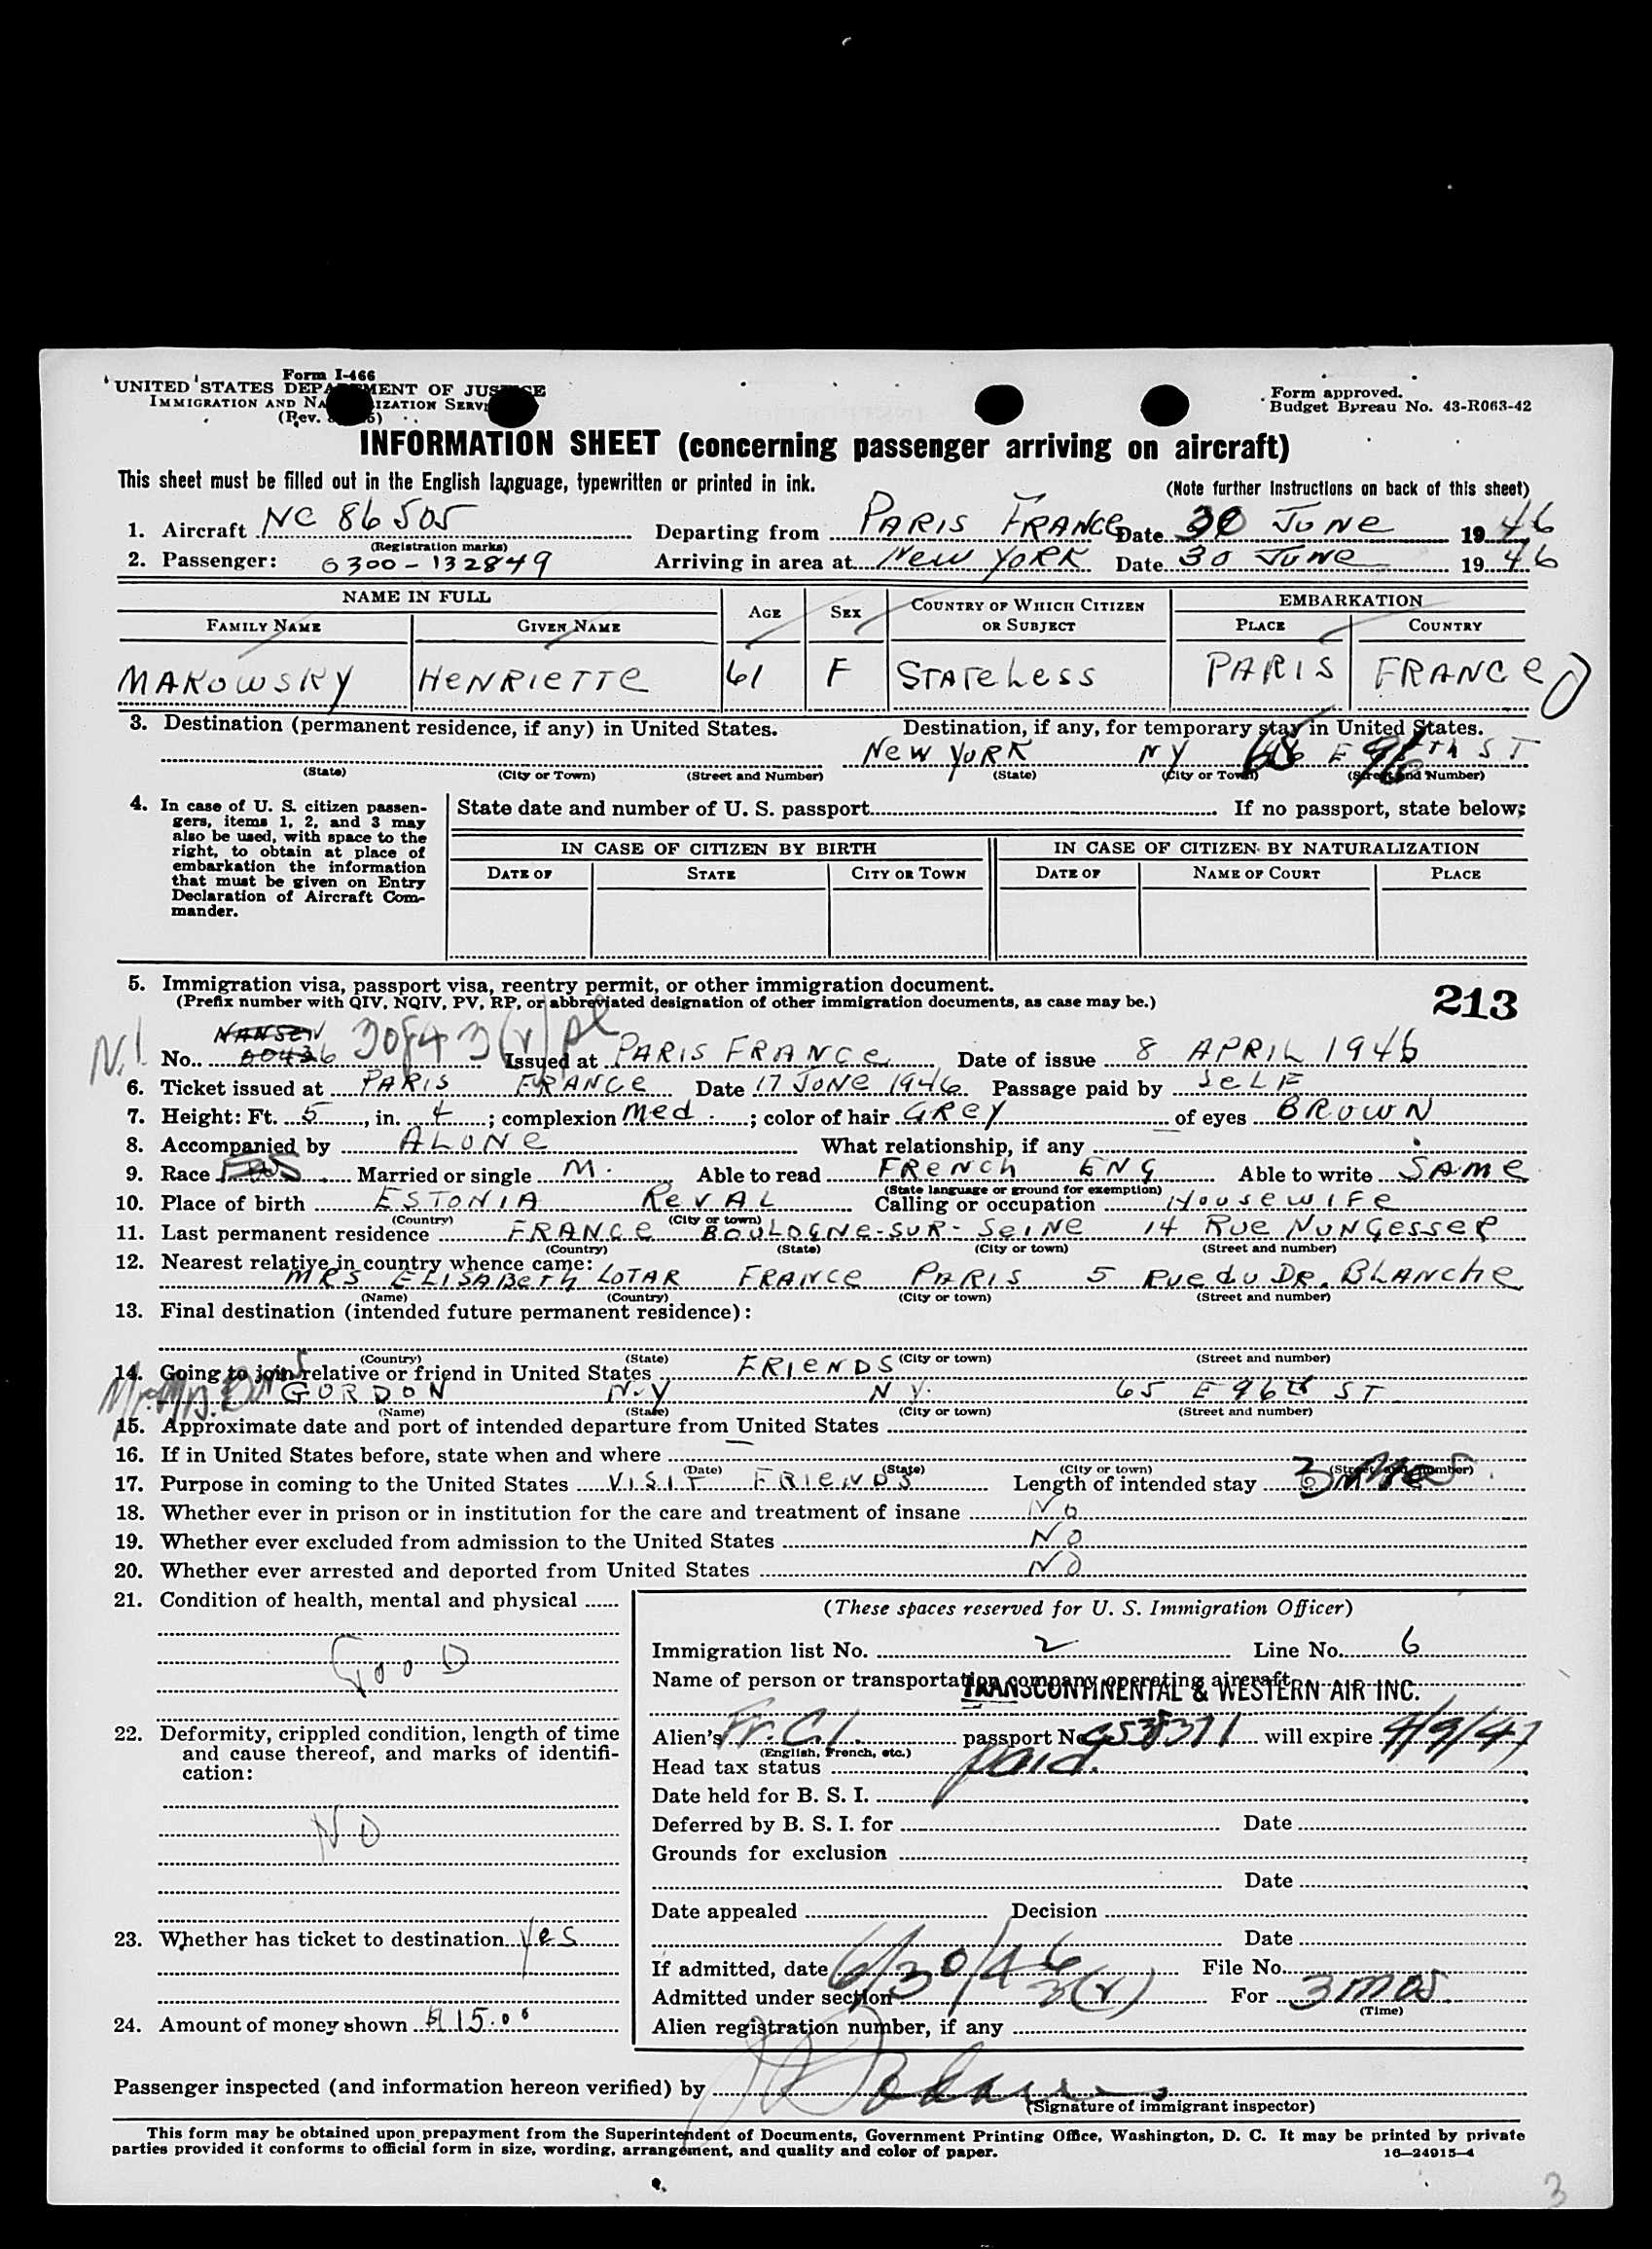 Form I-466
UNITED STATES DEPARTMENT OF JUSTICE
IMMIGRATION AND NATURALIZATION SERVICE
(Rev.
Form approved.
Budget Bureau No. 43-R063-42
INFORMATION SHEET (concerning passenger arriving on aircraft)
This sheet must be filled out in the English language, typewritten or printed in ink.
(Note further instructions on back of this sheet)
1. Aircraft NC 86505 Departing from PARIS FRANCE Date 30 JUNE 1946
(Registration marks)
2. Passenger: 6300-132849 Arriving in area at New YORK Date 30 JUNE 1946
NAME IN FULL AGE SEX COUNTRY OF WHICH CITIZEN OR SUBJECT EMBARKATION
FAMILY NAME GIVEN NAME PLACE COUNTRY
MAKOWSKY HENRIETTE 61 F STATELESS PARIS FRANCE
3. Destination (permanent residence, if any) in United States. Destination, if any, for temporary stay in United States.
New YORK NY 65 E 96th ST
(State) (City or Town) (Street and Number) (State) (City or Town) (Street and Number)
4. In case of U. S. citizen passengers, items 1, 2, and 3 may also be used, with space to the right, to obtain at place of embarkation the information that must be given on Entry Declaration of Aircraft Commander.
State date and number of U. S. passport If no passport, state below:
IN CASE OF CITIZEN BY BIRTH IN CASE OF CITIZEN BY NATURALIZATION
DATE OF STATE CITY OR TOWN DATE OF NAME OF COURT PLACE
5. Immigration visa, passport visa, reentry permit, or other immigration document.
(Prefix number with QIV, NQIV, PV, RP, or abbreviated designation of other immigration documents, as case may be.)
213
NANSEN
N.I. No. 3843(v) Issued at PARIS FRANCE Date of issue 8 APRIL 1946
6. Ticket issued at PARIS FRANCE Date 17 JUNE 1946 Passage paid by SELF
7. Height: Ft. 5, in. 4; complexion Med.; color of hair GREY of eyes BROWN
8. Accompanied by ALONE What relationship, if any
9. Race Married or single M. Able to read FRENCH ENG Able to write SAME
(State language or ground for exemption)
10. Place of birth ESTONIA REVAL Calling or occupation HOUSEWIFE
(Country) (City or town)
11. Last permanent residence FRANCE BOULOGNE-SUR-SEINE 14 RUE NUNGESSER
(Country) (State) (City or town) (Street and number)
12. Nearest relative in country whence came:
MRS ELISABETH LOTAR FRANCE PARIS 5 RUE du DR. BLANCHE
(Name) (Country) (City or town) (Street and number)
13. Final destination (intended future permanent residence):
(Country) (State) (City or town) (Street and number)
14. Going to join relative or friend in United States FRIENDS
Mr. Mrs. GORDON N.Y N.Y. 65 E 96th ST
(Name) (State) (City or town) (Street and number)
15. Approximate date and port of intended departure from United States
16. If in United States before, state when and where
(Date) (State) (City or town) (Street and number)
17. Purpose in coming to the United States VISIT FRIENDS Length of intended stay 3 mos.
18. Whether ever in prison or in institution for the care and treatment of insane No
19. Whether ever excluded from admission to the United States NO
20. Whether ever arrested and deported from United States NO
21. Condition of health, mental and physical
GOOD
22. Deformity, crippled condition, length of time and cause thereof, and marks of identification:
NO
23. Whether has ticket to destination Yes
24. Amount of money shown $15.00
(These spaces reserved for U. S. Immigration Officer)
Immigration list No. 2 Line No. 6
Name of person or transportation company operating aircraft
TRANSCONTINENTAL & WESTERN AIR INC.
Alien's Fr. C.I. passport No. will expire 4/9/47
(English, French, etc.)
Head tax status paid.
Date held for B. S. I.
Deferred by B. S. I. for Date
Grounds for exclusion
Date
Date appealed Decision
Date
If admitted, date 6/30/46 File No.
Admitted under section 3(2) For 3 mos.
(Time)
Alien registration number, if any
Passenger inspected (and information hereon verified) by
(Signature of immigrant inspector)
This form may be obtained upon prepayment from the Superintendent of Documents, Government Printing Office, Washington, D. C. It may be printed by private
parties provided it conforms to official form in size, wording, arrangement, and quality and color of paper. 16—24915-4
3